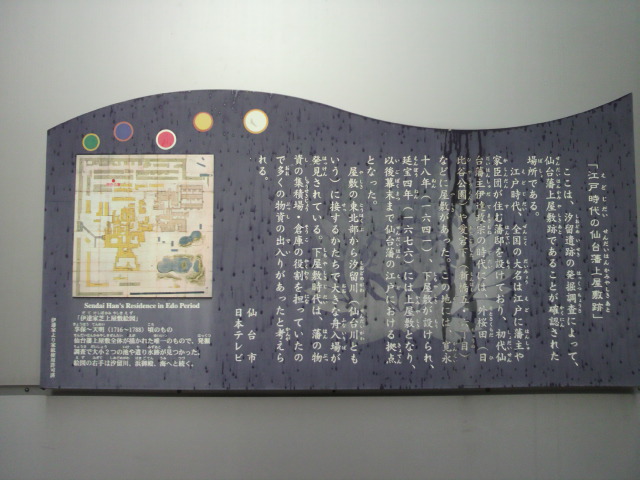 「江戸時代の仙台藩上屋敷跡」
ここは、汐留遺跡の発掘調査によって、
仙台藩上屋敷跡であることが確認された
場所である。
江戸時代、全国の大名は江戸に藩主や
家臣団が住む藩邸を設けており、初代仙
台藩主伊達政宗の時代には、外桜田（日
比谷公園）や愛宕下（新橋五、六丁目）
などに屋敷があった。この地には、寛永
十八年（一六四一）、下屋敷が設けられ、
延宝四年（一六七六）には上屋敷となり、
以後幕末まで仙台藩の江戸における拠点
となった。
屋敷の東北部から汐留川（仙台川とも
いう）に接するかたちで大きな舟入場が
発見されている。下屋敷時代は、藩の物
資の集積場、倉庫の役割を担っていたの
で多くの物資の出入りがあったと考えら
れる。
仙台市
日本テレビ
Sendai Han's Residence in Edo Period
「伊達家芝上屋敷絵図」
享保〜天明（1716〜1788）頃のもの
仙台藩上屋敷全体が描かれた唯一のもので、発掘
調査で大小2つの池や遣り水跡が見つかった。
絵図の右手は汐留川、浜御殿、海へと続く。